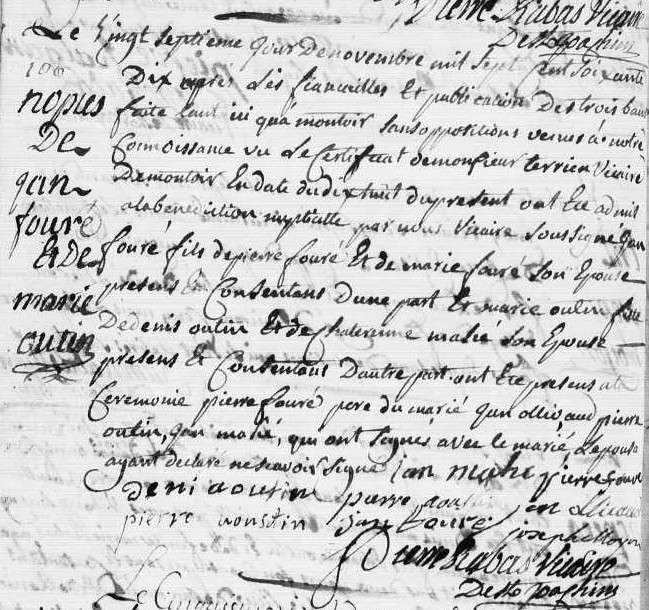 Dum Rabas Vicaire
De St Joachim
Le vingt septieme jour de novembre mil sept cent soixante
Dix apres Les fiancailles Et publication Des trois bans
faite tant ici qu'a montoir sans oppositions venues a notre
Connoissance vu Le Certificat de monsieur terrien Vicaire
De montoir En date du dix huit du present ont Ete admis
a la benediction nuptialle par nous Vicaire soussigné jan
fouré fils de pierre fouré Et de marie fouré Son Epouse
presens Et Consentans D'une part Et marie outin fille
De denis outin Et de Chaterinne mahé Son Epouse
presens Et Consentans D'autre part. ont Ete presens a la
Ceremonie pierre fouré pere du marié jan olliveaud pierre
outin, jan mahé, qui ont signés avec le marié, L'epouse
ayant declaré ne scavoir signe
nopces
De
jan
fouré
Et de
marie
outin
jan mahe pierre fouré
deni aoutin pierre jan
pierro jan fouré joseph
Dum Rabas Vicaire
De St Joachim
Le Cinquieme